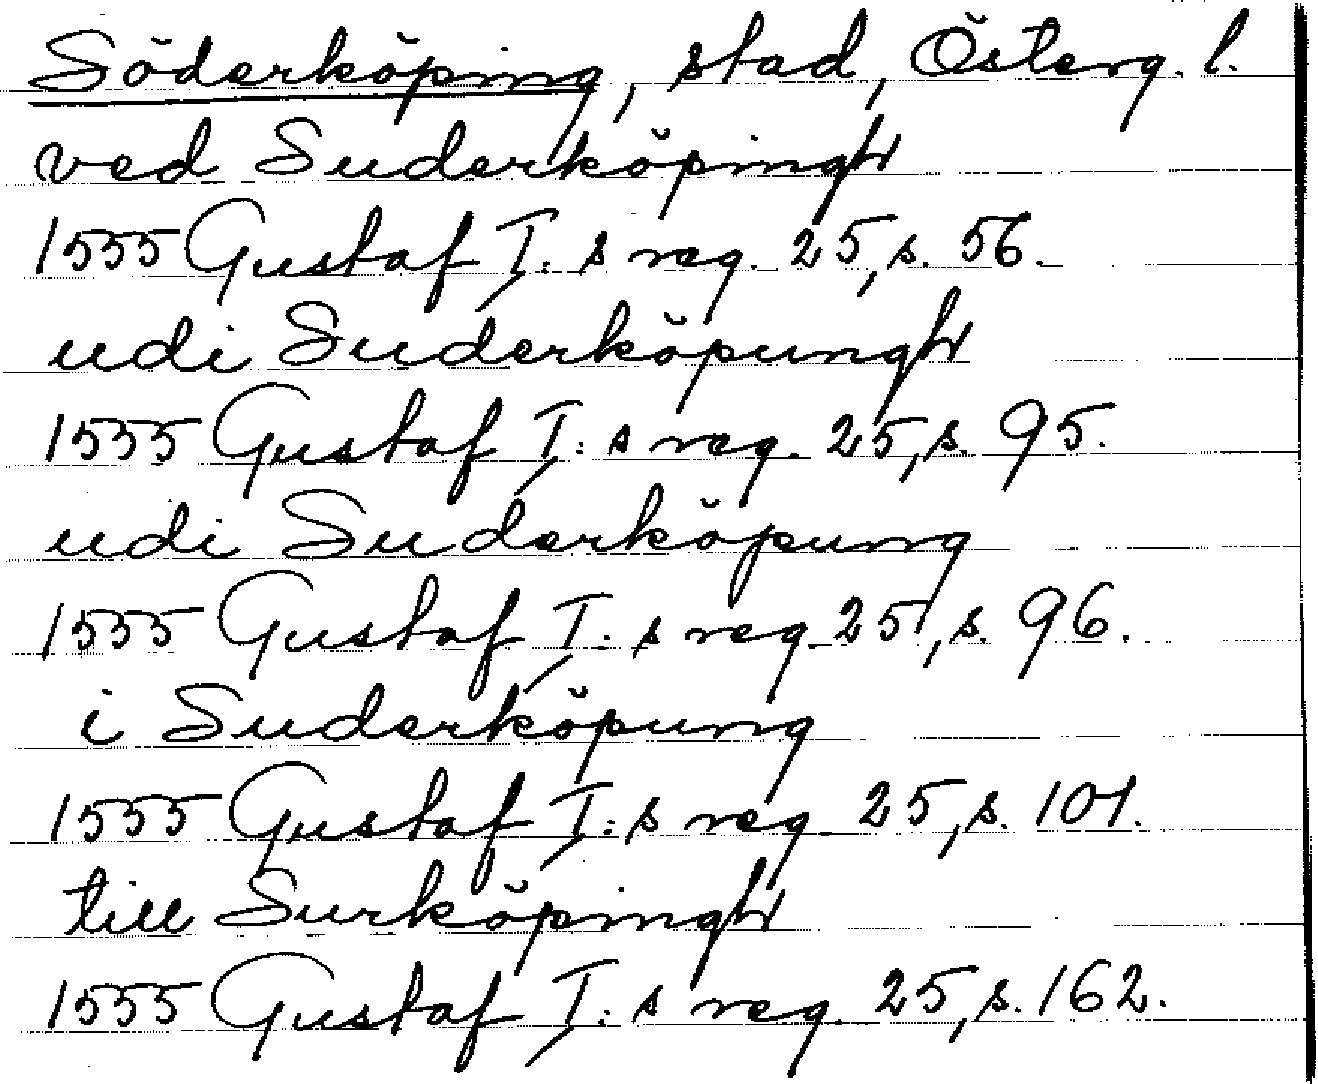 Söderköping, stad, Österg. l.
ved Suderköpingh
1555 Gustaf I:s reg. 25, s. 56.
udi Suderköpungh
1555 Gustaf I:s reg. 25, s. 95.
udi Suderköpung
1555 Gustaf I:s reg. 25, s. 96.
i Suderköpung
1555 Gustaf I:s reg. 25, s. 101.
till Surköpingh
1555 Gustaf I:s reg. 25, s. 162.